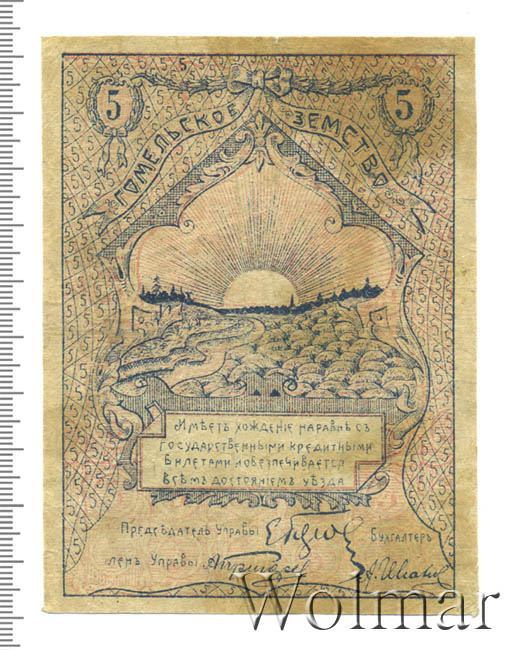 5 5
ГОМЕЛЬСКОЕ ЗЕМСТВО
Имѣетъ хожденіе наравнѣ съ
государственными кредитными
билетами и обезпечивается
всѣмъ достояніемъ уѣзда
Предсѣдатель Управы Бухгалтеръ
членъ Управы
Wolmar